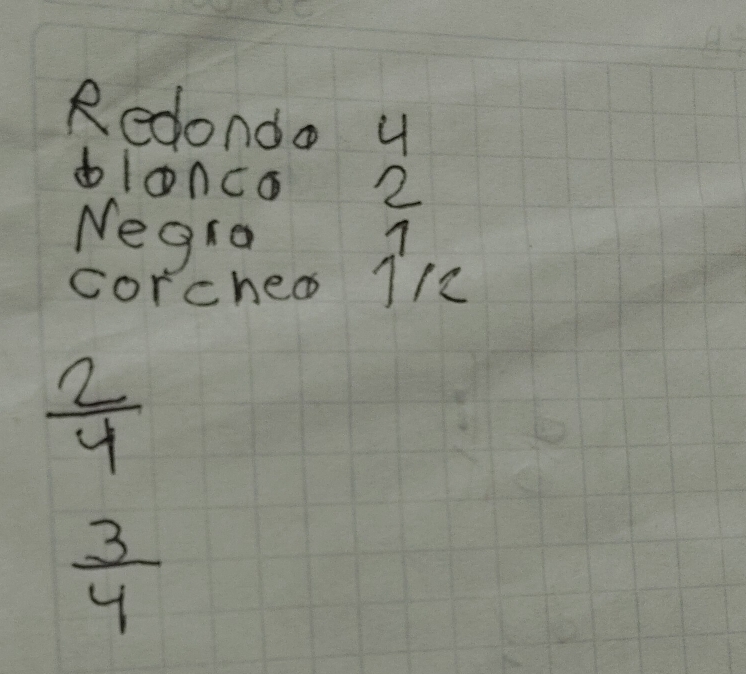 Redonda 4
blanca 2
Negra 1
corchea 1/2
2
4
3
4